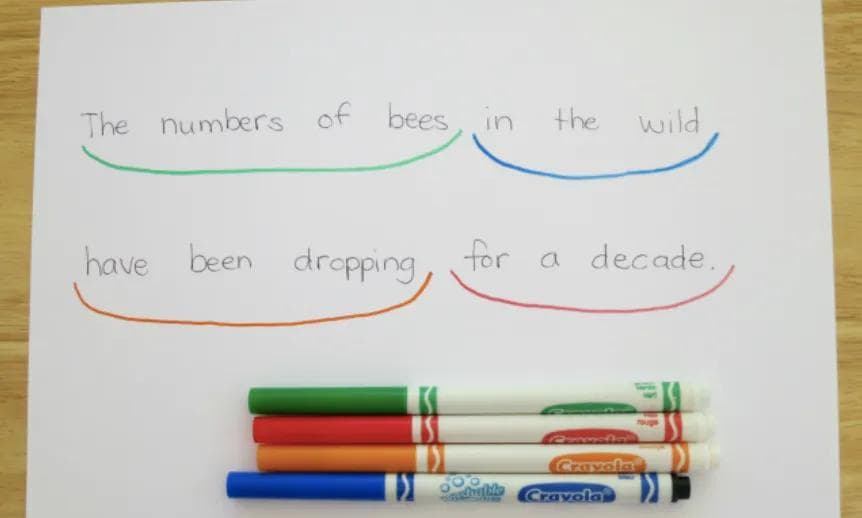 The numbers of bees in the wild
have been dropping for a decade.
rouge
Crayola
Crayola
Crayola